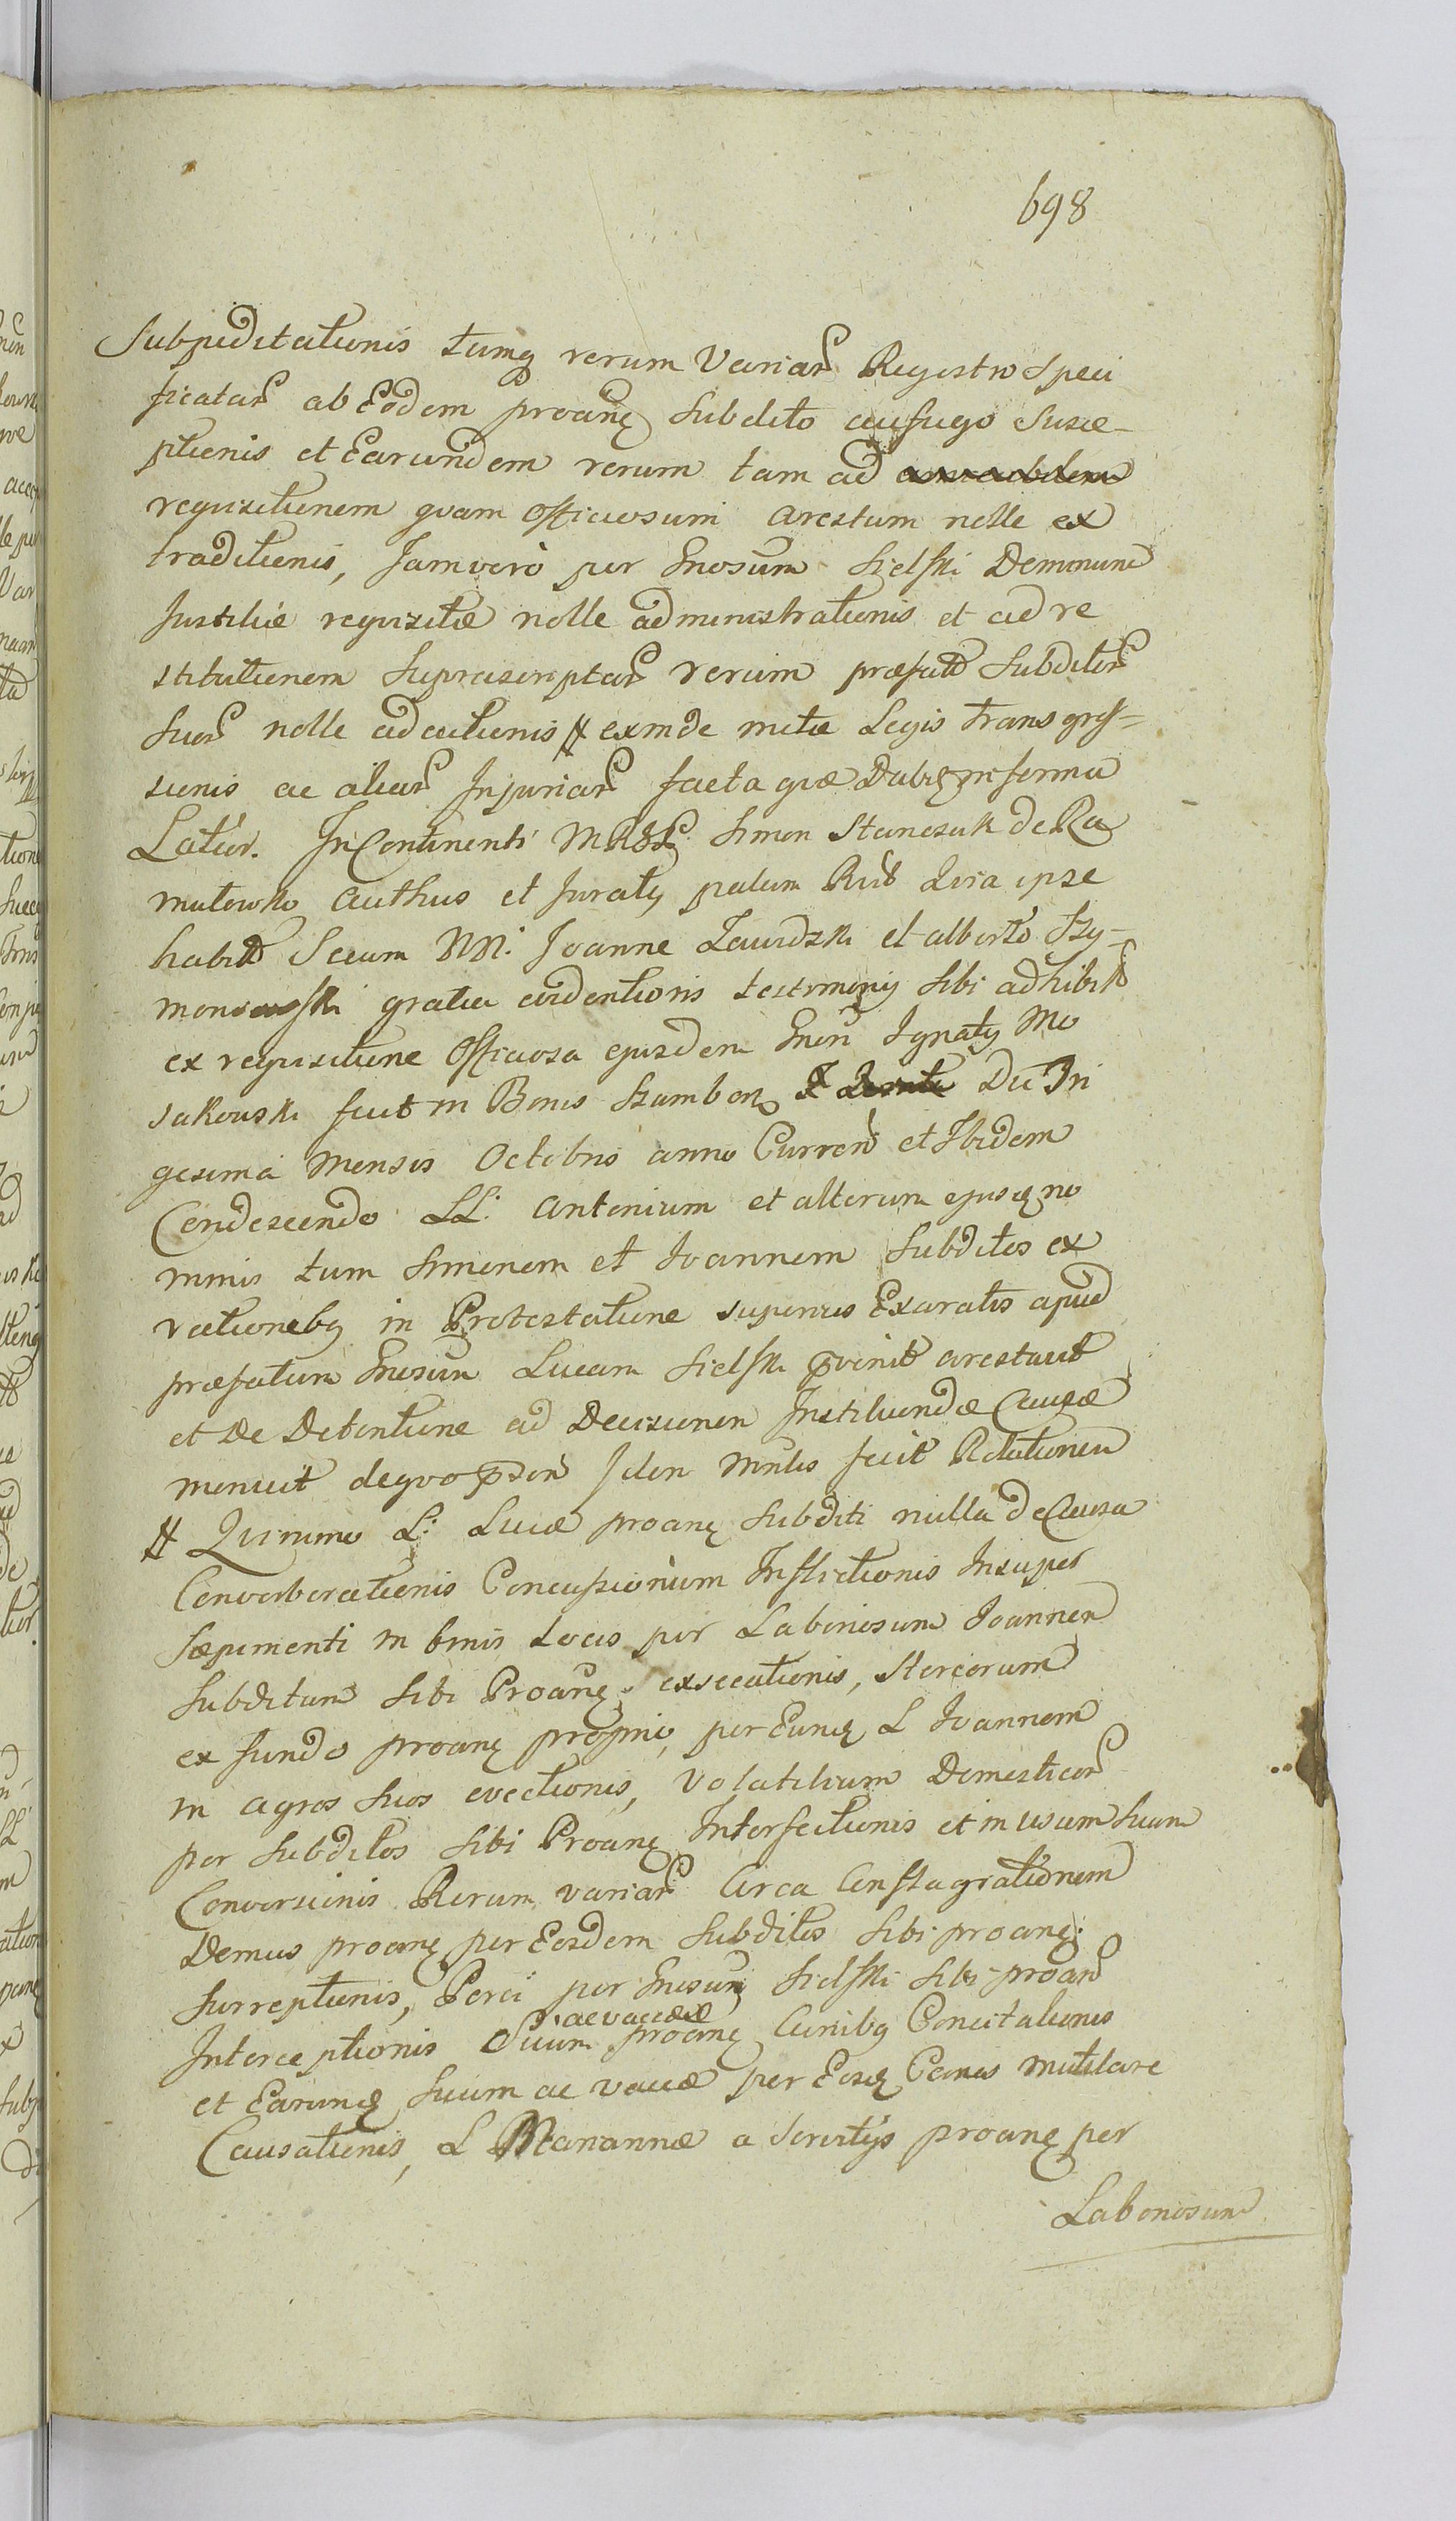 698
Subpeditationis tumq rerum Variar Regestro Speci
ficatar ab Eodem proanq Subdito aufugo Susce-
ptionis et Earundem rerum tam ad
requisitionem quam officiosum arestum nolle ex
traditionis, Jamvero per Gnosum Sielski Dominum
Justitiæ requisitæ nolle administrationis et ad re
stitutionem Suprascriptar rerum præfat Subditor
Suor nolle adactionis # exinde mitæ Legis transgres-
sionis ac aliar Injuriar facta quæ Dabit informa
Latior. In Continenti Simon Stanczak de Ra
mutowko authus et Juratq palam Quia ipse
habit Secum NN. Joanne Zawidzki et alberto Szy-
monowski gratia evidentioris testimonij Sibi adhibit
ex requisitione Officiosa ejusdem Gnon Ignatij Mo
sakowski fuit in Bonis Szambork Die Tri
gesima Mensis Octobris anno Curren et Ibidem
Condescendo LL. Antonium et alterum ejusq no
minis tum Simonem et Joannem Subditos ex
rationebq in Protestatione superius Exaratis apud
præfatum Gnosum Lucam Sielski pvenit arestavit
et De Detentione ad Decisionem Instituendæ Causæ
monuit dequo pson Iden Mnlis fecit Relationem
# Quinimo L. Lucæ proanq Subditi nulla de Causa
Converberationis Concussionum Inflictionis Insuper
Sæpimenti in binis Locis per Laboriosum Joannem
Subditum Sibi Proanq exsecationis, Stercorum
ex fundo proanq proprio, per Eunq L Joannem
in agros Suos evectionis, Volatilium Domesticor
per Subditos Sibi Proanq Interfectionis et in usum Suum
Conversionis Rerum variar Circa Conflagrationem
Domus proanq per Eosdem Subditos Sibi proanq
Surreptionis, Porci per Gnosum Sielski Sibi proan
ac vaccæ
Interceptionis Suum proanq Canibq Concitationis
et Earunq Suum ac vaccæ per Eosq Canes mutilare
Causationis, L Mariannæ a Servitijs proanq per
Laboriosum